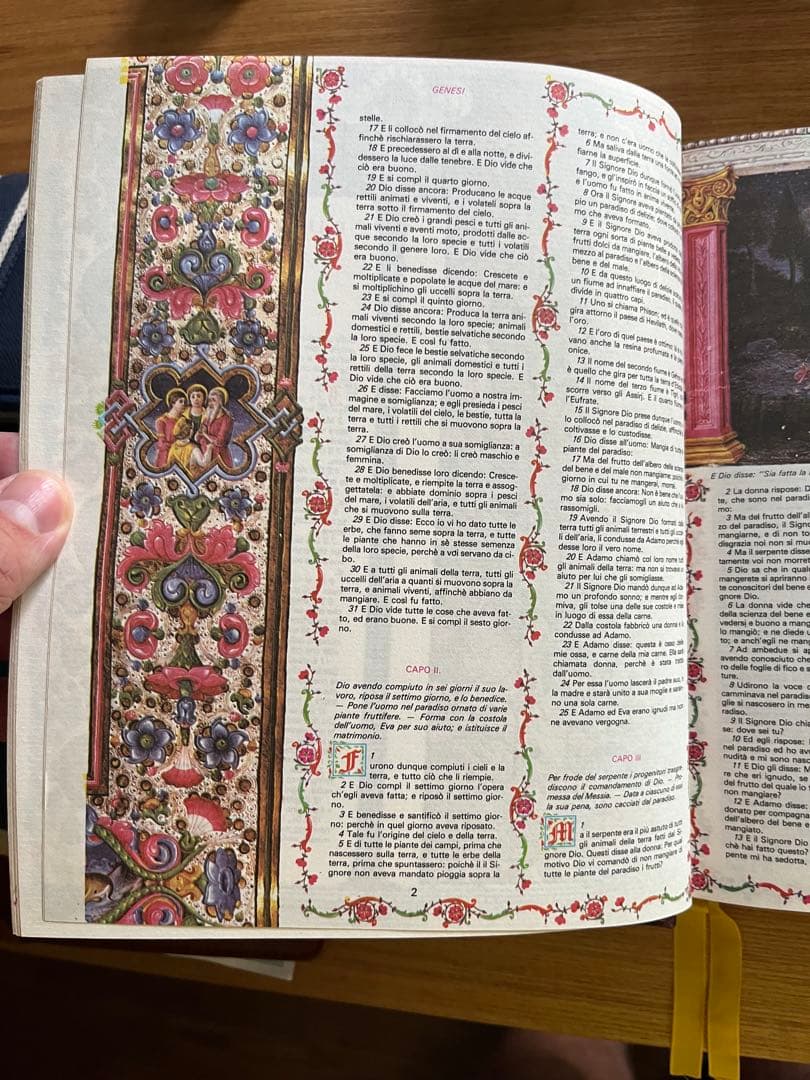 GENESI
stelle.
17 E li collocò nel firmamento del cielo af-
finchè rischiarassero la terra.
18 E precedessero al dì e alla notte, e divi-
dessero la luce dalle tenebre. E Dio vide che
ciò era buono.
19 E si compì il quarto giorno.
20 Dio disse ancora: Producano le acque
rettili animati e viventi, e i volateli sopra la
terra sotto il firmamento del cielo.
21 E Dio creò i grandi pesci e tutti gli ani-
mali viventi e aventi moto, prodotti dalle ac-
que secondo la loro specie e tutti i volatili
secondo il genere loro. E Dio vide che ciò
era buono.
22 E li benedisse dicendo: Crescete e
moltiplicate e popolate le acque del mare: e
si moltiplichino gli uccelli sopra la terra.
23 E si compì il quinto giorno.
24 Dio disse ancora: Produca la terra ani-
mali viventi secondo la loro specie; animali
domestici e rettili, bestie selvatiche secondo
la loro specie. E così fu fatto.
25 E Dio fece le bestie selvatiche secondo
la loro specie, gli animali domestici e tutti i
rettili della terra secondo la loro specie. E
Dio vide che ciò era buono.
26 E disse: Facciamo l'uomo a nostra im-
magine e somiglianza; e egli presieda i pesci
del mare, i volatili del cielo, le bestie, tutta la
terra e tutti i rettili che si muovono sopra la
terra.
27 E Dio creò l'uomo a sua somiglianza; a
somiglianza di Dio lo creò: li creò maschio e
femmina.
28 E Dio benedisse loro dicendo: Cresce-
te e moltiplicate, e riempite la terra e assog-
gettatela: e abbiate dominio sopra i pesci
del mare, i volatili dell'aria, e tutti gli animali
che si muovono sulla terra.
29 E Dio disse: Ecco io vi ho dato tutte le
erbe, che fanno seme sopra la terra, e tutte
le piante che hanno in sè stesse semenza
della loro specie, perchè a voi servano da ci-
bo.
30 E a tutti gli animali della terra, tutti gli
uccelli dell'aria a quanti si muovono sopra la
terra, e animali viventi, affinchè abbiano da
mangiare. E così fu fatto.
31 E Dio vide tutte le cose che aveva fat-
to, ed erano buone. E si compì il sesto gior-
no.
CAPO II.
Dio avendo compiuto in sei giorni il suo la-
voro, riposa il settimo giorno, e lo benedice.
— Pone l'uomo nel paradiso ornato di varie
piante fruttifere. — Forma con la costola
dell'uomo, Eva per suo aiuto; e istituisce il
matrimonio.
Furono dunque compiuti i cieli e la
terra, e tutto ciò che li riempie.
2 E Dio compì il settimo giorno l'opera
ch'egli aveva fatta; e riposò il settimo gior-
no.
3 E benedisse e santificò il settimo gior-
no: perchè in quel giorno aveva riposato.
4 Tale fu l'origine del cielo e della terra.
5 E di tutte le piante dei campi, prima che
nascessero sulla terra, e tutte le erbe della
terra, prima che spuntassero: poichè il il Si-
gnore non aveva mandato pioggia sopra la
terra; e non c'era uomo che la
6 Ma saliva dalla terra una
fiarne la superficie.
7 Il Signore Dio dunque formò
fango, e gl'inspirò in faccia
e l'uomo fu fatto in anima
8 Ora il Signore aveva
pio un paradiso di delizie, dove
mo che aveva formato.
9 E il Signore Dio aveva
terra ogni sorta di piante belle a
frutti dolci da mangiare, l'albero
mezzo al paradiso e l'albero della
bene e del male.
10 E da questo luogo di delizie
un fiume ad innaffiare il paradiso, il
divide in quattro capi.
11 Uno si chiama Phison; ed è
gira attorno il paese di Hevilath, dove
l'oro.
12 E l'oro di quel paese è ottimo;
vano anche la resina profumata e
onice.
13 Il nome del secondo fiume è
è quello che gira per tutta la terra
14 Il nome del terzo fiume è
scorre verso gli Assirj. E il quarto
l'Eufrate.
15 Il Signore Dio prese dunque l'uomo
lo collocò nel paradiso di delizie, affinchè
coltivasse e lo custodisse.
16 Dio disse all'uomo: Mangia di tutte
piante del paradiso:
17 Ma del frutto dell'albero della scienza
del bene e del male non mangiarne:
giorno in cui tu ne mangerai,
18 Dio disse ancora: Non è bene che
mo sia solo: facciamogli un aiuto che
rassomigli.
19 Avendo il Signore Dio formati dalla
terra tutti gli animali terrestri e tutti gli
li dell'aria, li condusse da Adamo perchè
desse loro il vero nome.
20 E Adamo chiamò col loro nome tutti
gli animali della terra: ma non si trovava
aiuto per lui che gli somigliasse.
21 Il Signore Dio mandò dunque ad Ada-
mo un profondo sonno; e mentre egli dor-
miva, gli tolse una delle sue costole e mise
in luogo di essa della carne.
22 Dalla costola fabbricò una donna e la
condusse ad Adamo.
23 E Adamo disse: questa è osso delle
mie ossa, e carne della mia carne. Ella sarà
chiamata donna, perchè è stata tratta
dall'uomo.
24 Per essa l'uomo lascerà il padre suo, e
la madre e starà unito a sua moglie e saran-
no una sola carne.
25 E Adamo ed Eva erano ignudi ma non
ne avevano vergogna.
CAPO III
Per frode del serpente i progenitori trasgre-
discono il comandamento di Dio. — Pro-
messa del Messia. — Data a ciascuno di essi
la sua pena, sono cacciati dal paradiso.
1
Ma il serpente era il più astuto di tutti
gli animali della terra fatti dal Si-
gnore Dio. Questi disse alla donna: Per qual
motivo Dio vi comandò di non mangiare di
tutte le piante del paradiso i frutti?
2
E Dio disse: "Sia fatta la
2 La donna rispose:
te, che sono nel parad
mo:
3 Ma del frutto dell'al
zo del paradiso, il Signor
mangiarne, e di non to
disgrazia noi non si mu
4 Ma il serpente disse
tamente voi non morret
5 Dio sa che in qual
mangerete si apriranno
te conoscitori del bene
gnore Dio.
6 La donna vide che
della scienza del bene e
vedersj e buono a mang
lo mangiò; e ne diede
to; e anch'egli ne mang
7 Ad ambedue si ap
avendo conosciuto che
ro delle foglie di fico e s
ture.
8 Udirono la voce
camminava nel paradis
glie si nascosero in me
radiso.
9 Il Signore Dio chia
se: dove sei tu?
10 Ed egli rispose:
nel paradiso ed ho av
nudità e mi sono nasc
11 E Dio gli disse: M
re che eri ignudo, se
del frutto del quale io
non mangiare?
12 E Adamo disse:
donato per compagna
dell'albero del bene e
mangiato.
13 E il Signore Dio
chè hai fatto questo?
pente mi ha sedotta,